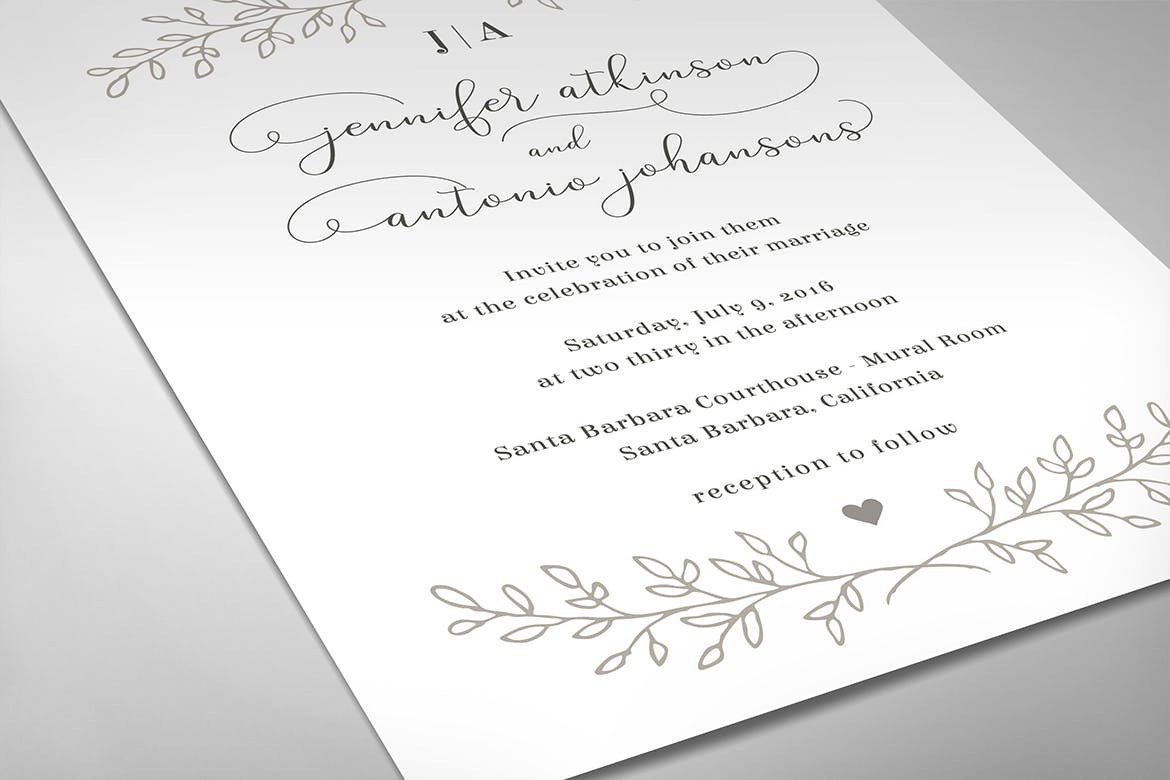 J | A
jennifer atkinson
and
antonio johansons
Invite you to join them
at the celebration of their marriage
Saturday, July 9, 2016
at two thirty in the afternoon
Santa Barbara Courthouse - Mural Room
Santa Barbara, California
reception to follow